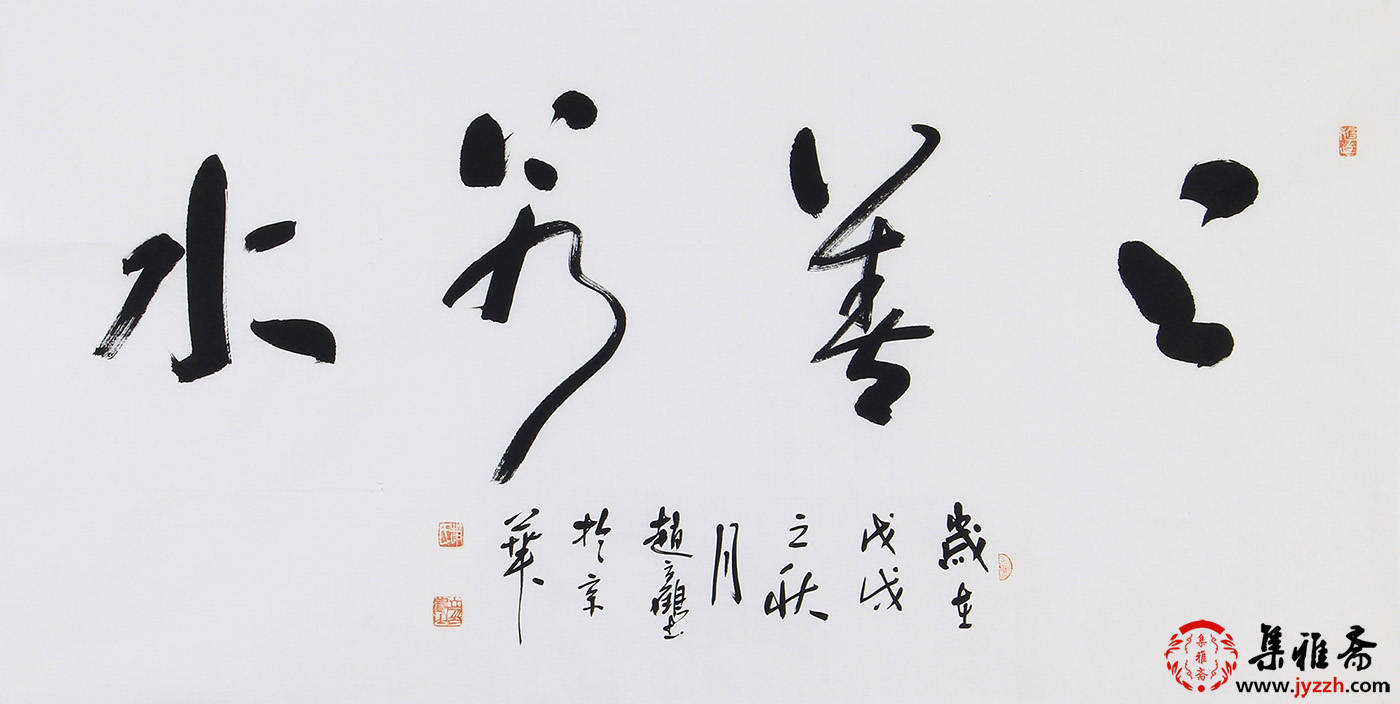 上善若水
歲在
戊戌
之秋
月
趙立觀書
於京
華
集雅斋
www.jyzzh.com